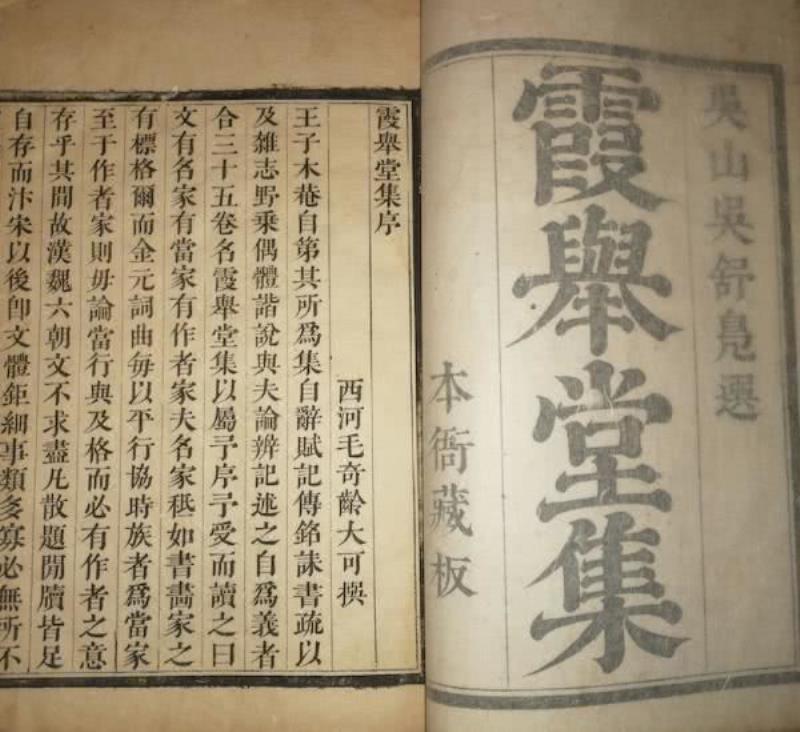 吳山吳舒鳧選
霞舉堂集
本衙藏板
霞舉堂集序
西河毛奇齡大可撰
王子木菴自第其所爲集自辭賦記傳銘誄書疏以
及雜志野乘偶體諧說與夫論辨記述之自爲義者
合三十五卷名霞舉堂集以屬予序予受而讀之曰
文有名家有當家有作者家夫名家秪如書畵家之
有標格爾而金元詞曲每以平行協時族者爲當家
至于作者家則毋論當行與及格而必有作者之意
存乎其間故漢魏六朝文不求盡凡散題閒牘皆足
自存而汴宋以後卽文體鉅細事類多寡必無所不